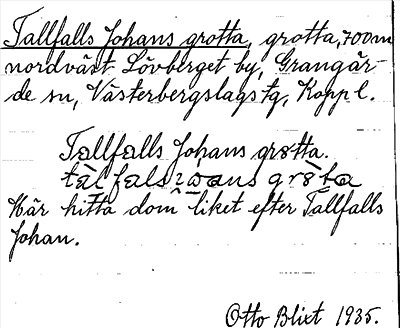 Tallfalls Johans grotta, grotta, 700 m
nordväst Lövberget by, Grangär-
de sn, Västerbergslags fg, Kopp l.
Tallfalls Johans grotta.
Här hitta dom liket efter Tallfalls
Johan.
Otto Blixt 1935.